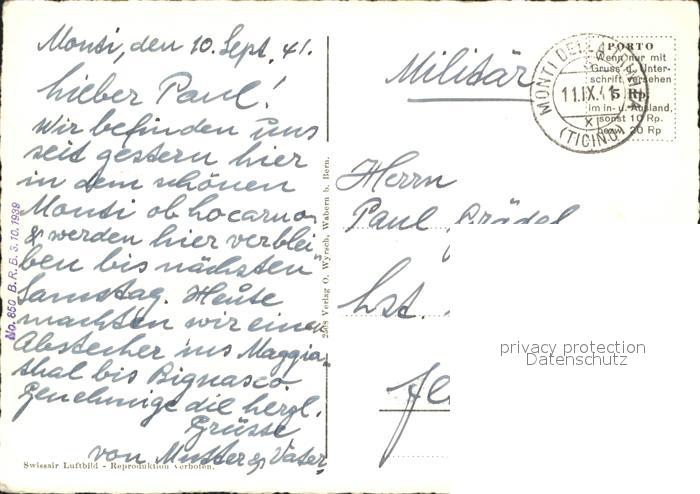 Monti, den 10. Sept. 41.
Lieber Paul!
Wir befinden uns
seit gestern hier
in dem schönen
Monti ob Locarno
& werden hier verblei
ben bis nächsten
Samstag. Heute
machten wir einen
Abstecher ins Maggia-
thal bis Bignasco
Genehmige die herzl.
Grüsse
von Mutter & Vater
Swissair Luftbild - Reproduktion verboten.
No. 850 B.R.B. 3.10.1939
2508 Verlag O. Wyrsch, Wabern b. Bern.
Militär
PORTO
Wenn nur mit
Gruss u. Unter-
schrift versehen
5 Rp.
im in- u. Ausland,
sonst 10 Rp.
bezw. 20 Rp
MONTI DELLA
11.IX.41
(TICINO)
Herrn
Paul Grädel
Lst.
privacy protection
Datenschutz